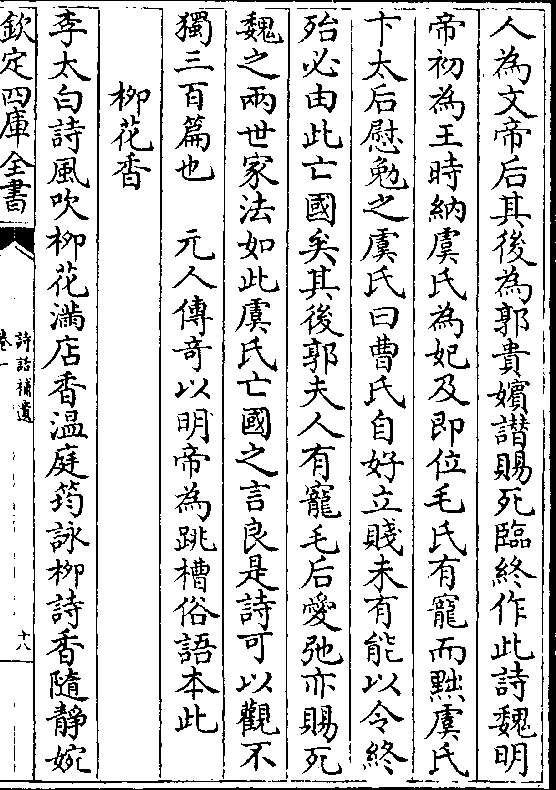 人為文帝后其後為郭貴嬪譛賜死臨終作此詩魏明
帝初為王時納虞氏為妃及即位毛氏有寵而黜虞氏
卞太后慰勉之虞氏曰曹氏自好立賤未有能以令終
殆必由此亡國矣其後郭夫人有寵毛后愛弛亦賜死
魏之兩世家法如此虞氏亡國之言良是詩可以觀不
獨三百篇也　元人傳奇以明帝為跳槽俗語本此
柳花香
李太白詩風吹柳花滿店香温庭筠詠柳詩香隨靜婉
欽定四庫全書
詩話補遺
卷一
十八